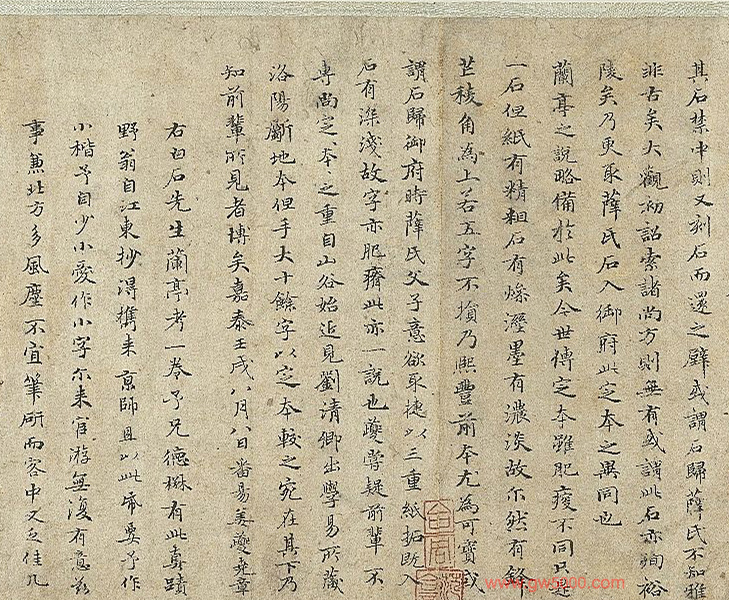 其石禁中則又刻石而還之壁或謂石歸薛氏不知雅
非古矣大觀初詔索諸尚方則無有或謂此石亦殉裕
陵矣乃更取薛氏石入御府此定本之異同也
蘭亭之說略備於此矣今世傳定本雖肥瘦不同只是
一石但紙有精粗石有燥溼墨有濃淡故尔然有鋒
芒稜角為上若五字不損乃熙豐前本尤為可寶或
謂石歸御府時薛氏父子意欲取捷以三重紙拓既入
石有深淺故字亦肥瘠此亦一說也夔嘗疑前輩不
專尚定本之重自山谷始近見劉清卿出學易所藏
洛陽斷地本但手大十餘字以定本較之宛在其下乃
知前輩所見者博矣嘉泰壬戌八月八日番昜姜夔堯章
右白石先生蘭亭考一卷予兄德楙有此真蹟
野翁自江東抄得攜来京師且以此帋要予作
小楷予自少小愛作小字尓来官游無復有意兹
事兼北方多風塵不宜筆硏而客中又乏佳几
www.gwb000.com